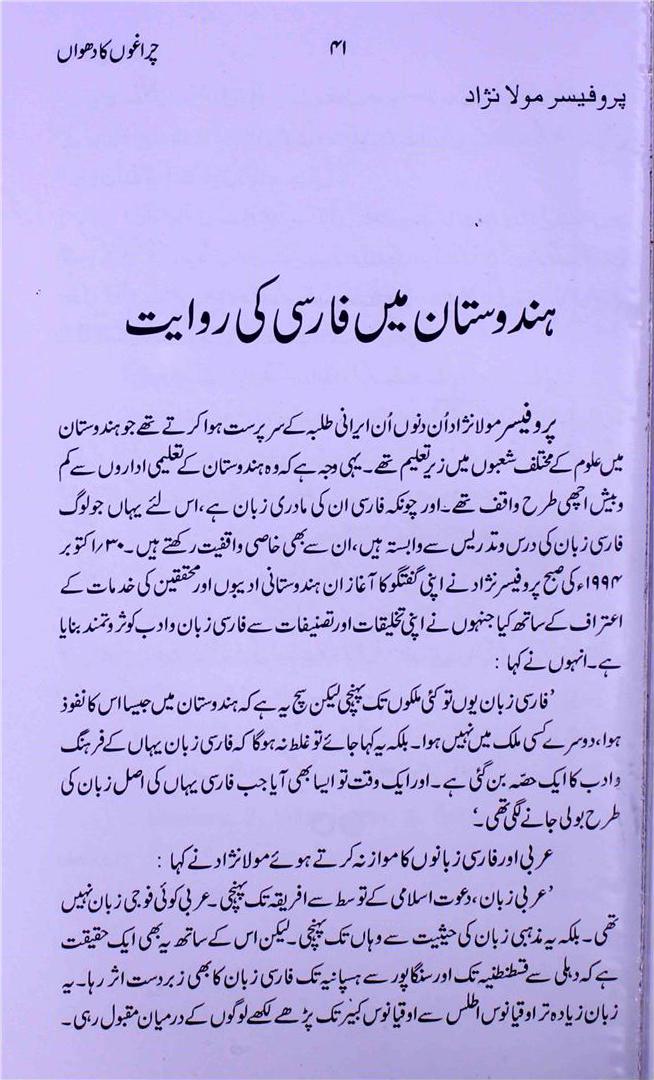 چراغوں کا دھواں
۴۱
پروفیسر مولا نژاد
ہندوستان میں فارسی کی روایت
پروفیسر مولا نژاد اُن دنوں اُن ایرانی طلبہ کے سرپرست ہوا کرتے تھے جو ہندوستان
میں علوم کے مختلف شعبوں میں زیرِ تعلیم تھے۔ یہی وجہ ہے کہ وہ ہندوستان کے تعلیمی اداروں سے کم
و بیش اچھی طرح واقف تھے۔ اور چونکہ فارسی ان کی مادری زبان ہے، اس لئے یہاں جو لوگ
فارسی زبان کی درس و تدریس سے وابستہ ہیں، ان سے بھی خاصی واقفیت رکھتے ہیں۔ ۳۰/اکتوبر
۱۹۹۴ء کی صبح پروفیسر نژاد نے اپنی گفتگو کا آغاز ان ہندوستانی ادیبوں اور محققین کی خدمات کے
اعتراف کے ساتھ کیا جنہوں نے اپنی تخلیقات اور تصنیفات سے فارسی زبان و ادب کو ثروتمند بنایا
ہے۔ انہوں نے کہا :
’فارسی زبان یوں تو کئی ملکوں تک پہنچی لیکن سچ یہ ہے کہ ہندوستان میں جیسا اس کا نفوذ
ہوا، دوسرے کسی ملک میں نہیں ہوا۔ بلکہ یہ کہا جائے تو غلط نہ ہوگا کہ فارسی زبان یہاں کے فرہنگ
و ادب کا ایک حصّہ بن گئی ہے۔ اور ایک وقت تو ایسا بھی آیا جب فارسی یہاں کی اصل زبان کی
طرح بولی جانے لگی تھی۔‘
عربی اور فارسی زبانوں کا موازنہ کرتے ہوئے مولا نژاد نے کہا :
’عربی زبان، دعوت اسلامی کے توسط سے افریقہ تک پہنچی۔ عربی کوئی فوجی زبان نہیں
تھی۔ بلکہ یہ مذہبی زبان کی حیثیت سے وہاں تک پہنچی۔ لیکن اس کے ساتھ یہ بھی ایک حقیقت
ہے کہ دہلی سے قسطنطنیہ تک اور سنگاپور سے ہسپانیہ تک فارسی زبان کا بھی زبردست اثر رہا۔ یہ
زبان زیادہ تر اوقیانوس اطلس سے اوقیانوس کبیر تک پڑھے لکھے لوگوں کے درمیان مقبول رہی۔